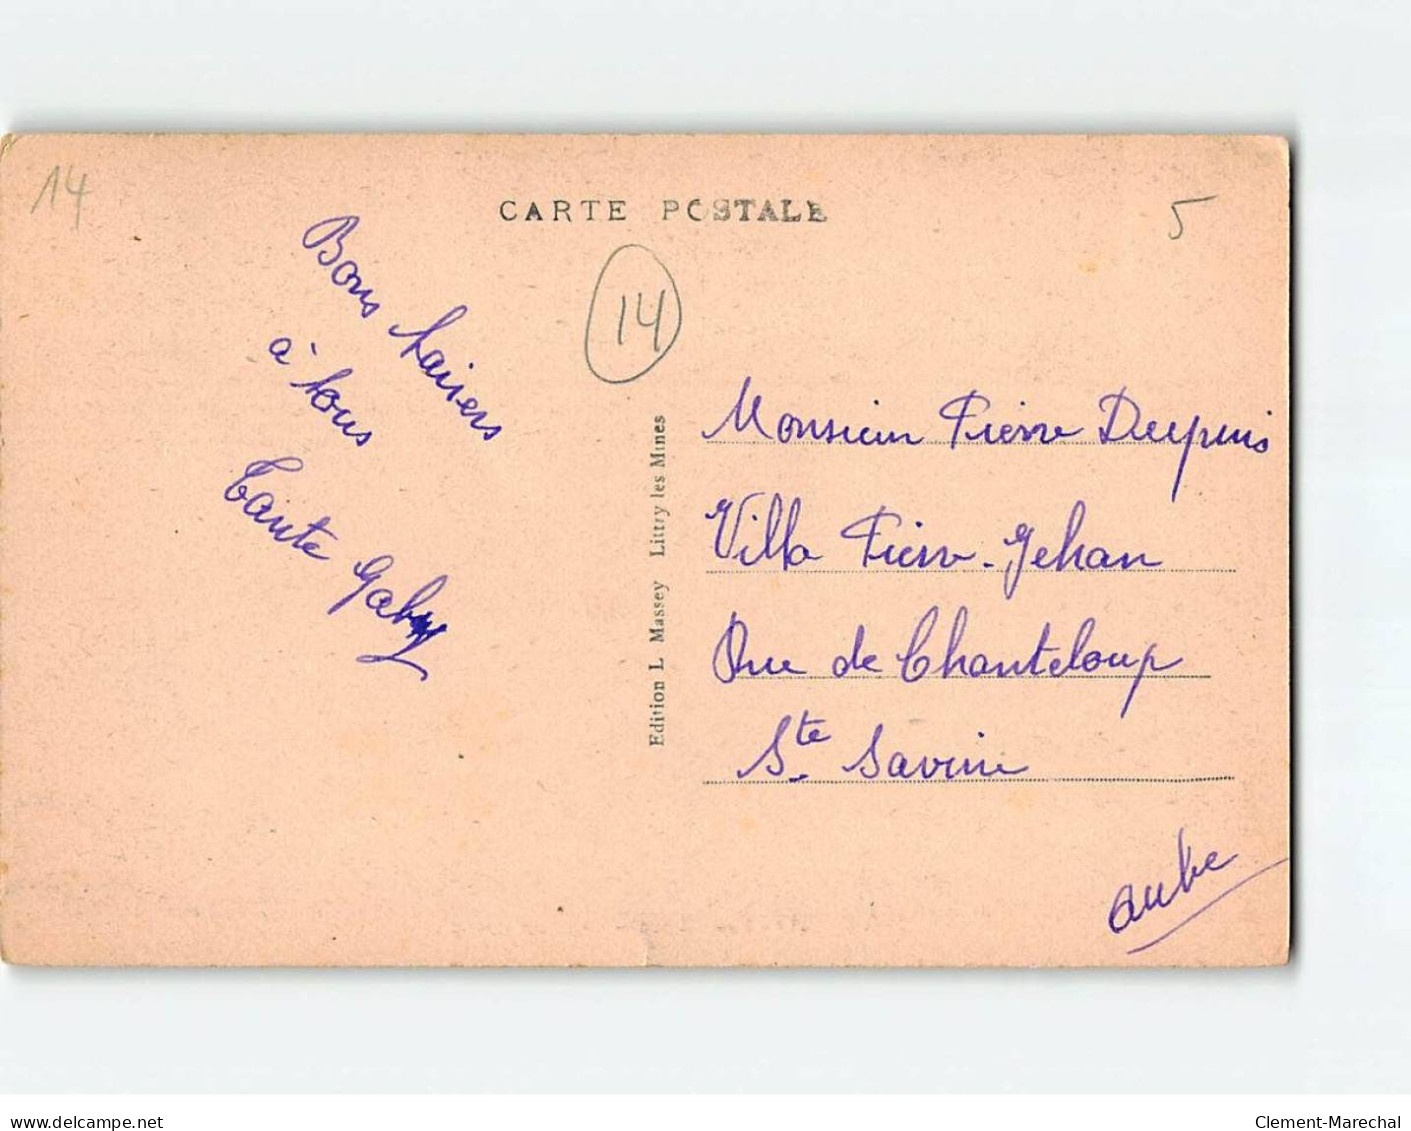 14
CARTE POSTALE
5
14
Bons baisers
à tous
Tante Gaby
Edition L Massey Littry les Mines
Monsieur Pierre Dupuis
Villa Pierre-Jehan
Rue de Chanteloup
Ste Savine
Aube
www.delcampe.net
Clement-Marechal